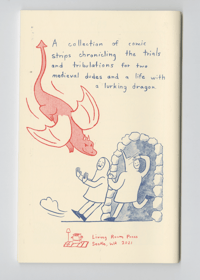 A collection of comic
strips chronicling the trials
and tribulations for two
medieval dudes and a life with
a lurking dragon.
Living Room Press
Seattle, WA 2021